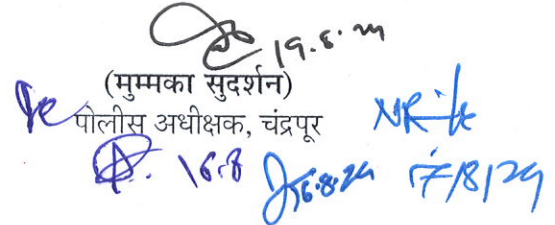 19.8.24
(मुम्मका सुदर्शन)
पोलीस अधीक्षक, चंद्रपूर
16.8
16.8.24
17/8/24